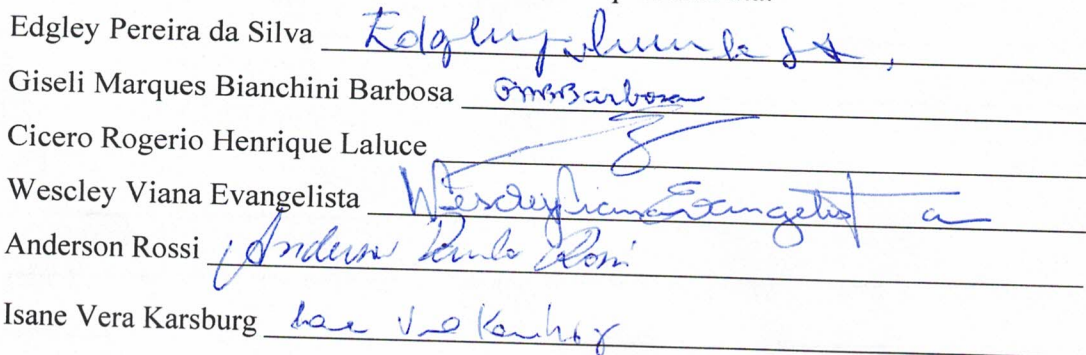 Edgley Pereira da Silva Edgley
Giseli Marques Bianchini Barbosa GMBBarbosa
Cicero Rogerio Henrique Laluce
Wescley Viana Evangelista Wescley Viana Evangelista
Anderson Rossi Anderson Paulo Rossi
Isane Vera Karsburg Isane Vera Karsburg